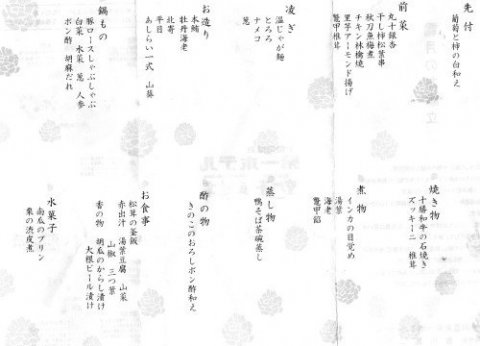 先付
葡萄と柿の白和え
前菜
丸十銀杏
干し柿松葉串
秋刀魚梅煮
チキン林檎焼
里芋アーモンド揚げ
鼈甲椎茸
凌ぎ
温じゃが麺
とろろ
ナメコ
葱
お造り
本鮪
牡丹海老
北寄
平目
あしらい一式 山葵
鍋もの
豚ロースしゃぶしゃぶ
白菜 水菜 葱 人参
ポン酢 胡麻だれ
焼き物
十勝和牛の石焼き
ズッキーニ 椎茸
煮物
インカの目覚め
湯葉
海老
鼈甲餡
蒸し物
鴨そば茶碗蒸し
酢の物
きのこのおろしポン酢和え
お食事
松茸の釜飯
赤出汁 湯葉豆腐 山菜
山椒 三つ葉
香の物 胡瓜のからし漬け
大根ビール漬け
水菓子
南瓜のプリン
栗の渋皮煮